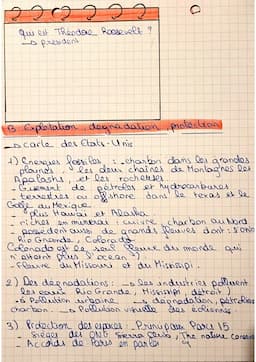 qui est Théodore Roosevelt ?
→ président
B Exploitation, dégradation, protection
→ carte des Etats-Unis
1) Energies fossiles : charbon dans les grandes
plaines, les deux chaînes de Montagnes les
Apalashs, et les rocheuses
gisement de pétroles et hydrocarbures
terrestres ou offshore dans le texas et le
Golfe du Mexique
plus Hawaï et Alaska
riches en minerai : cuivre, charbon au Nord
possèdent aussi de grands fleuves dont :
Rio Grande, Colorado
Colorado est le seul fleuve du monde qui
n'atteint plus l'océan
- Fleuve du Missouri et du Missisipi
2) Des dégradations : → les industries polluent
les eaux Rio Grande, Missisipi, détroit
→ Pollution urbaine → dégradation, pétrole,
charbon. → Pollution visuelle des éoliennes
3) Protection des espaces : Parcs 15
Sièges des ONG Sierra Club, The nature
- Accords de Paris en